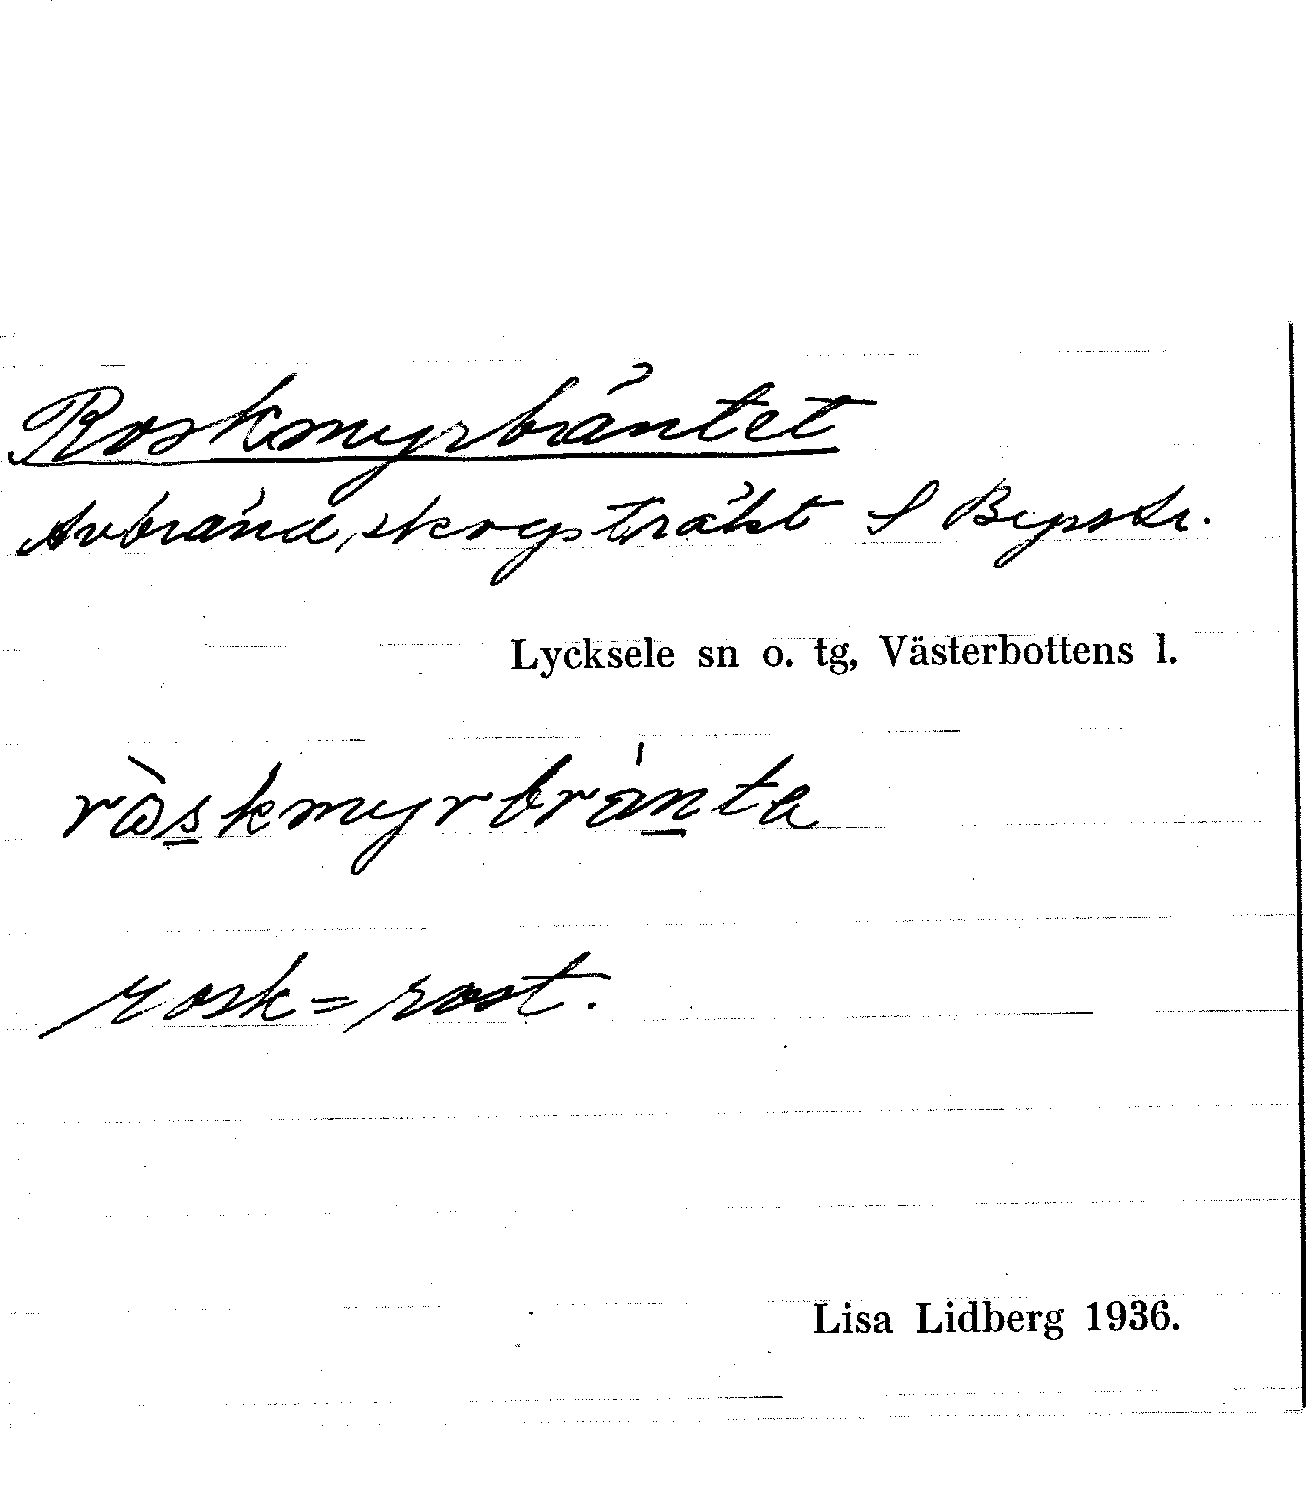 Roskmyrbräntet
Avbränd, skogstrakt S Bysstr.
Lycksele sn o. tg, Västerbottens l.
ròskmyrbränta
rosk = rost.
Lisa Lidberg 1936.